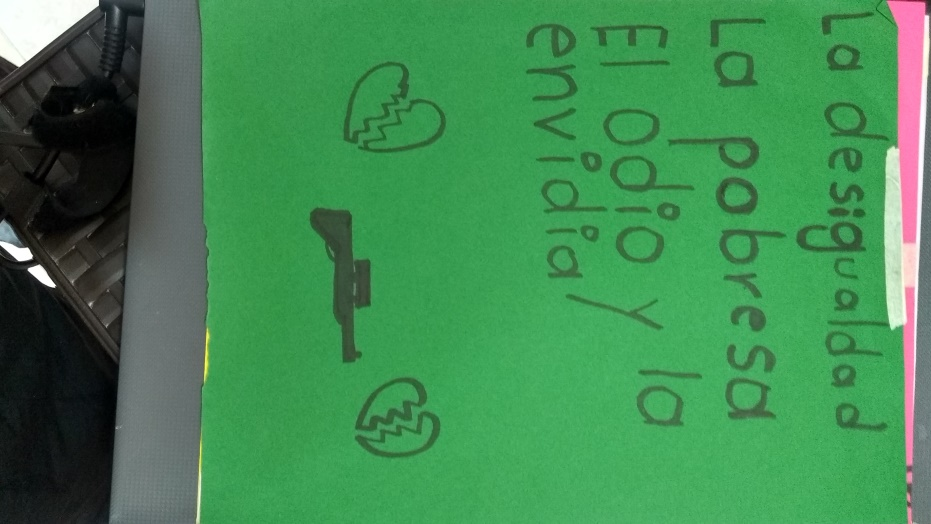 La desigualdad
La pobresa
El odio y la
envidia